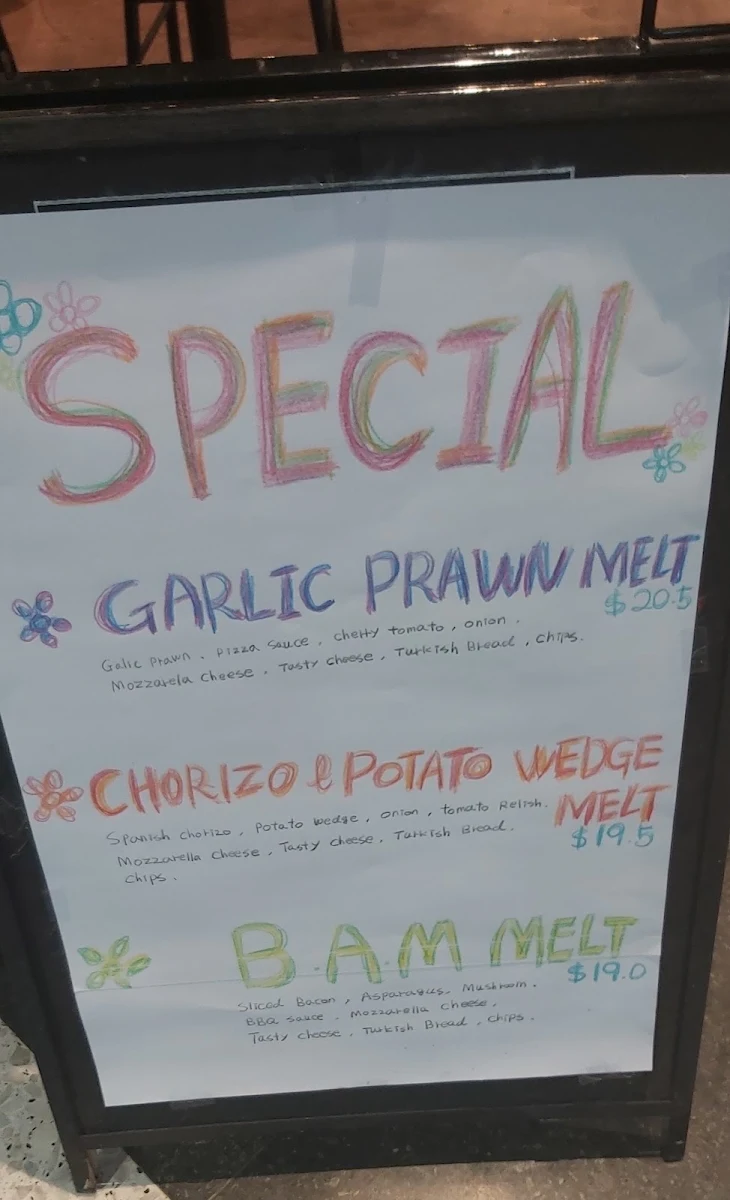 SPECIAL
GARLIC PRAWN MELT
$20.5
Galic Prawn . Pizza Sauce . cherry tomato , onion .
Mozzarela Cheese . Tasty cheese . Turkish Bread , chips.
CHORIZO & POTATO WEDGE
MELT
$19.5
Spanish chorizo , Potato wedge , onion , tomato Relish.
Mozzarella Cheese , Tasty cheese , Turkish Bread .
chips .
B.A.M MELT
$19.0
Sliced Bacon , Asparagus. Mushroom .
BBQ sauce . Mozzarella cheese .
Tasty cheese . Turkish Bread , chips .